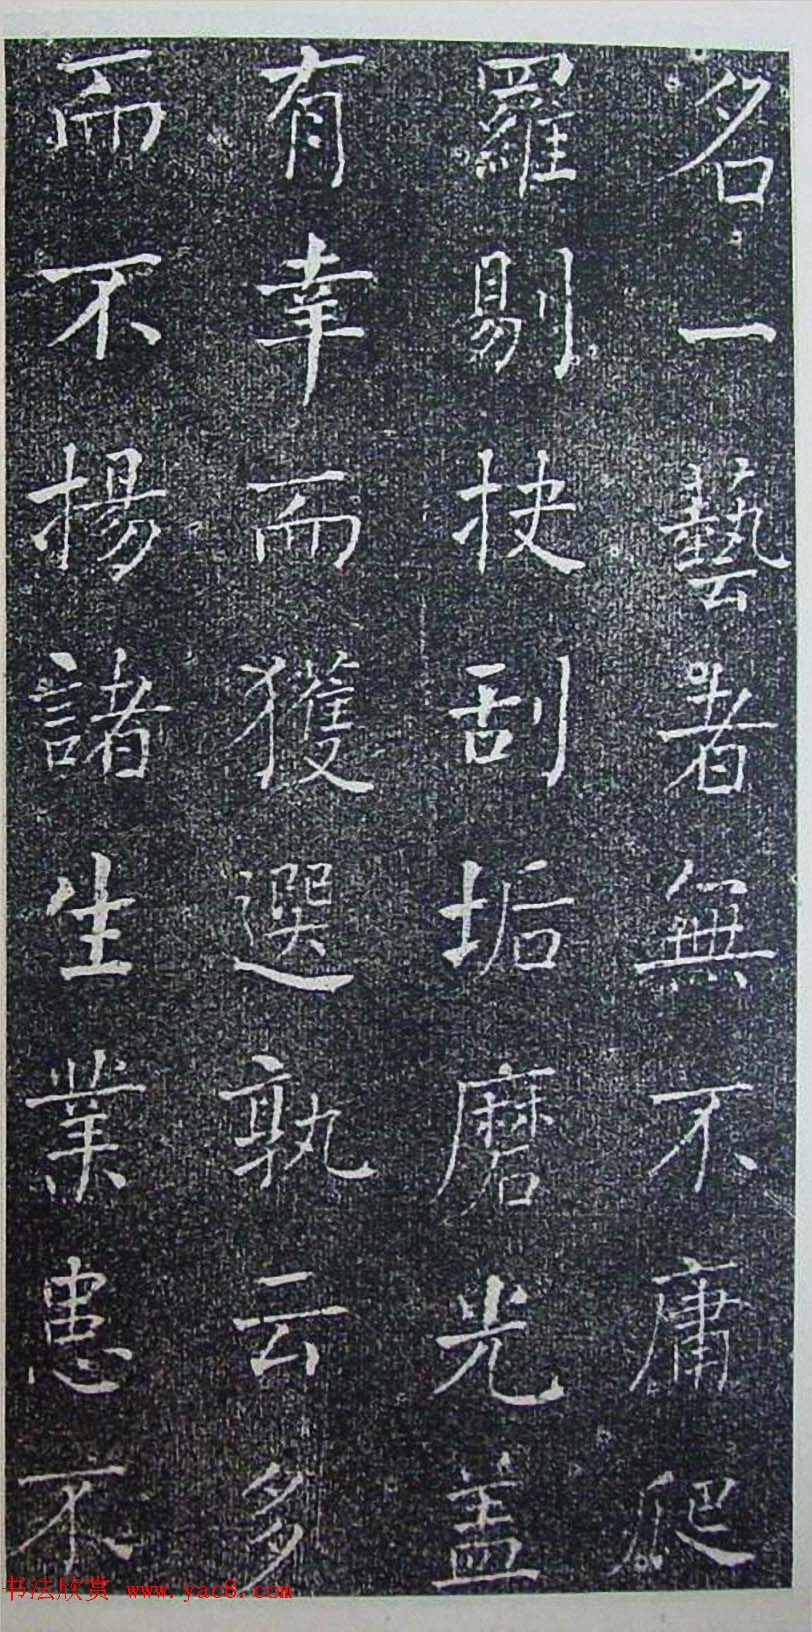 名一藝者無不庸爬
羅剔抉刮垢磨光盖
有幸而獲選孰云多
而不揚諸生業患不
书法欣赏 www.yac8.com